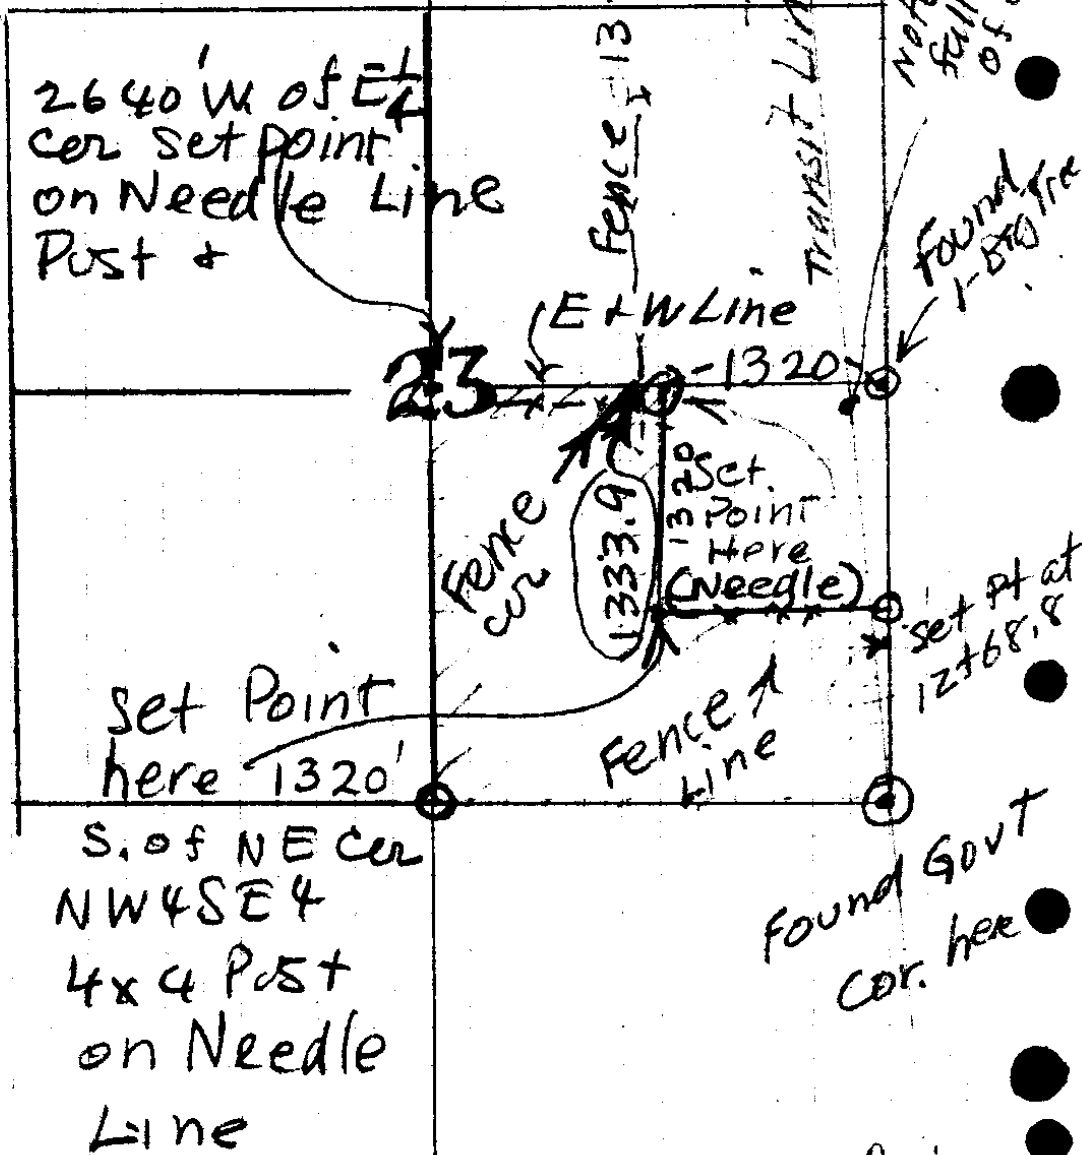 2640' W. of E 1/4
Cor set point
on Needle Line
Post +
Fence 13
Transit Line
Not
full
of
Found
E + W Line
1320
23
Fence
cor
1333.9
1320
Set
Point
Here
(Needle)
set pt at
12+68.8
Fence
Line
set Point
here 1320'
S. of NE Cor
NW4SE4
4x4 Post
on Needle
Line
Found Govt
Cor. here